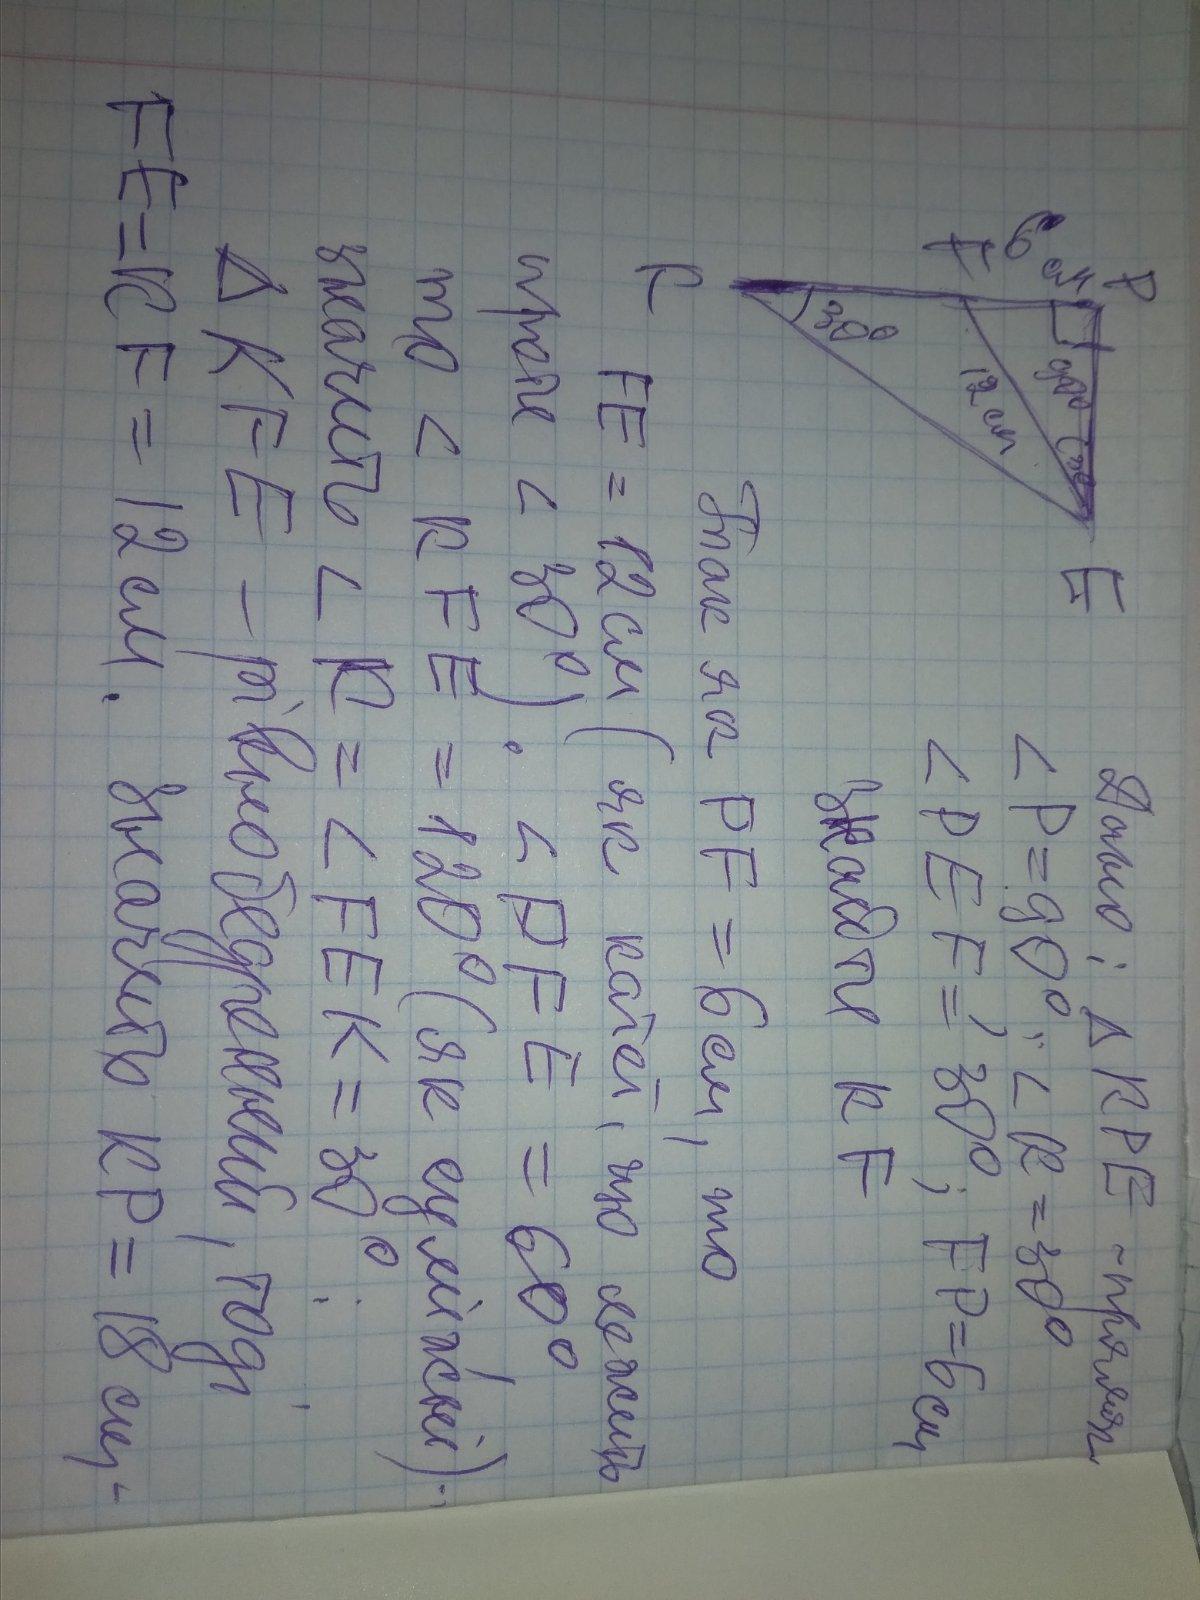 P
6 см
90°
30°
E
F
12 см
30°
K
Дано: Δ KPE - прямок
< P = 90°; < K = 30°
< PEF = 30°; FP = 6 см
Знайти KF
Так як PF = 6 см, то
FE = 12 см (як катет, що лежить
проти < 30°). < PFE = 60°
то < KFE = 120° (як суміжні).
значить < K = < FEK = 30°.
Δ KFE - рівнобедренний, тоді
FE = KF = 12 см. Значить KP = 18 см.